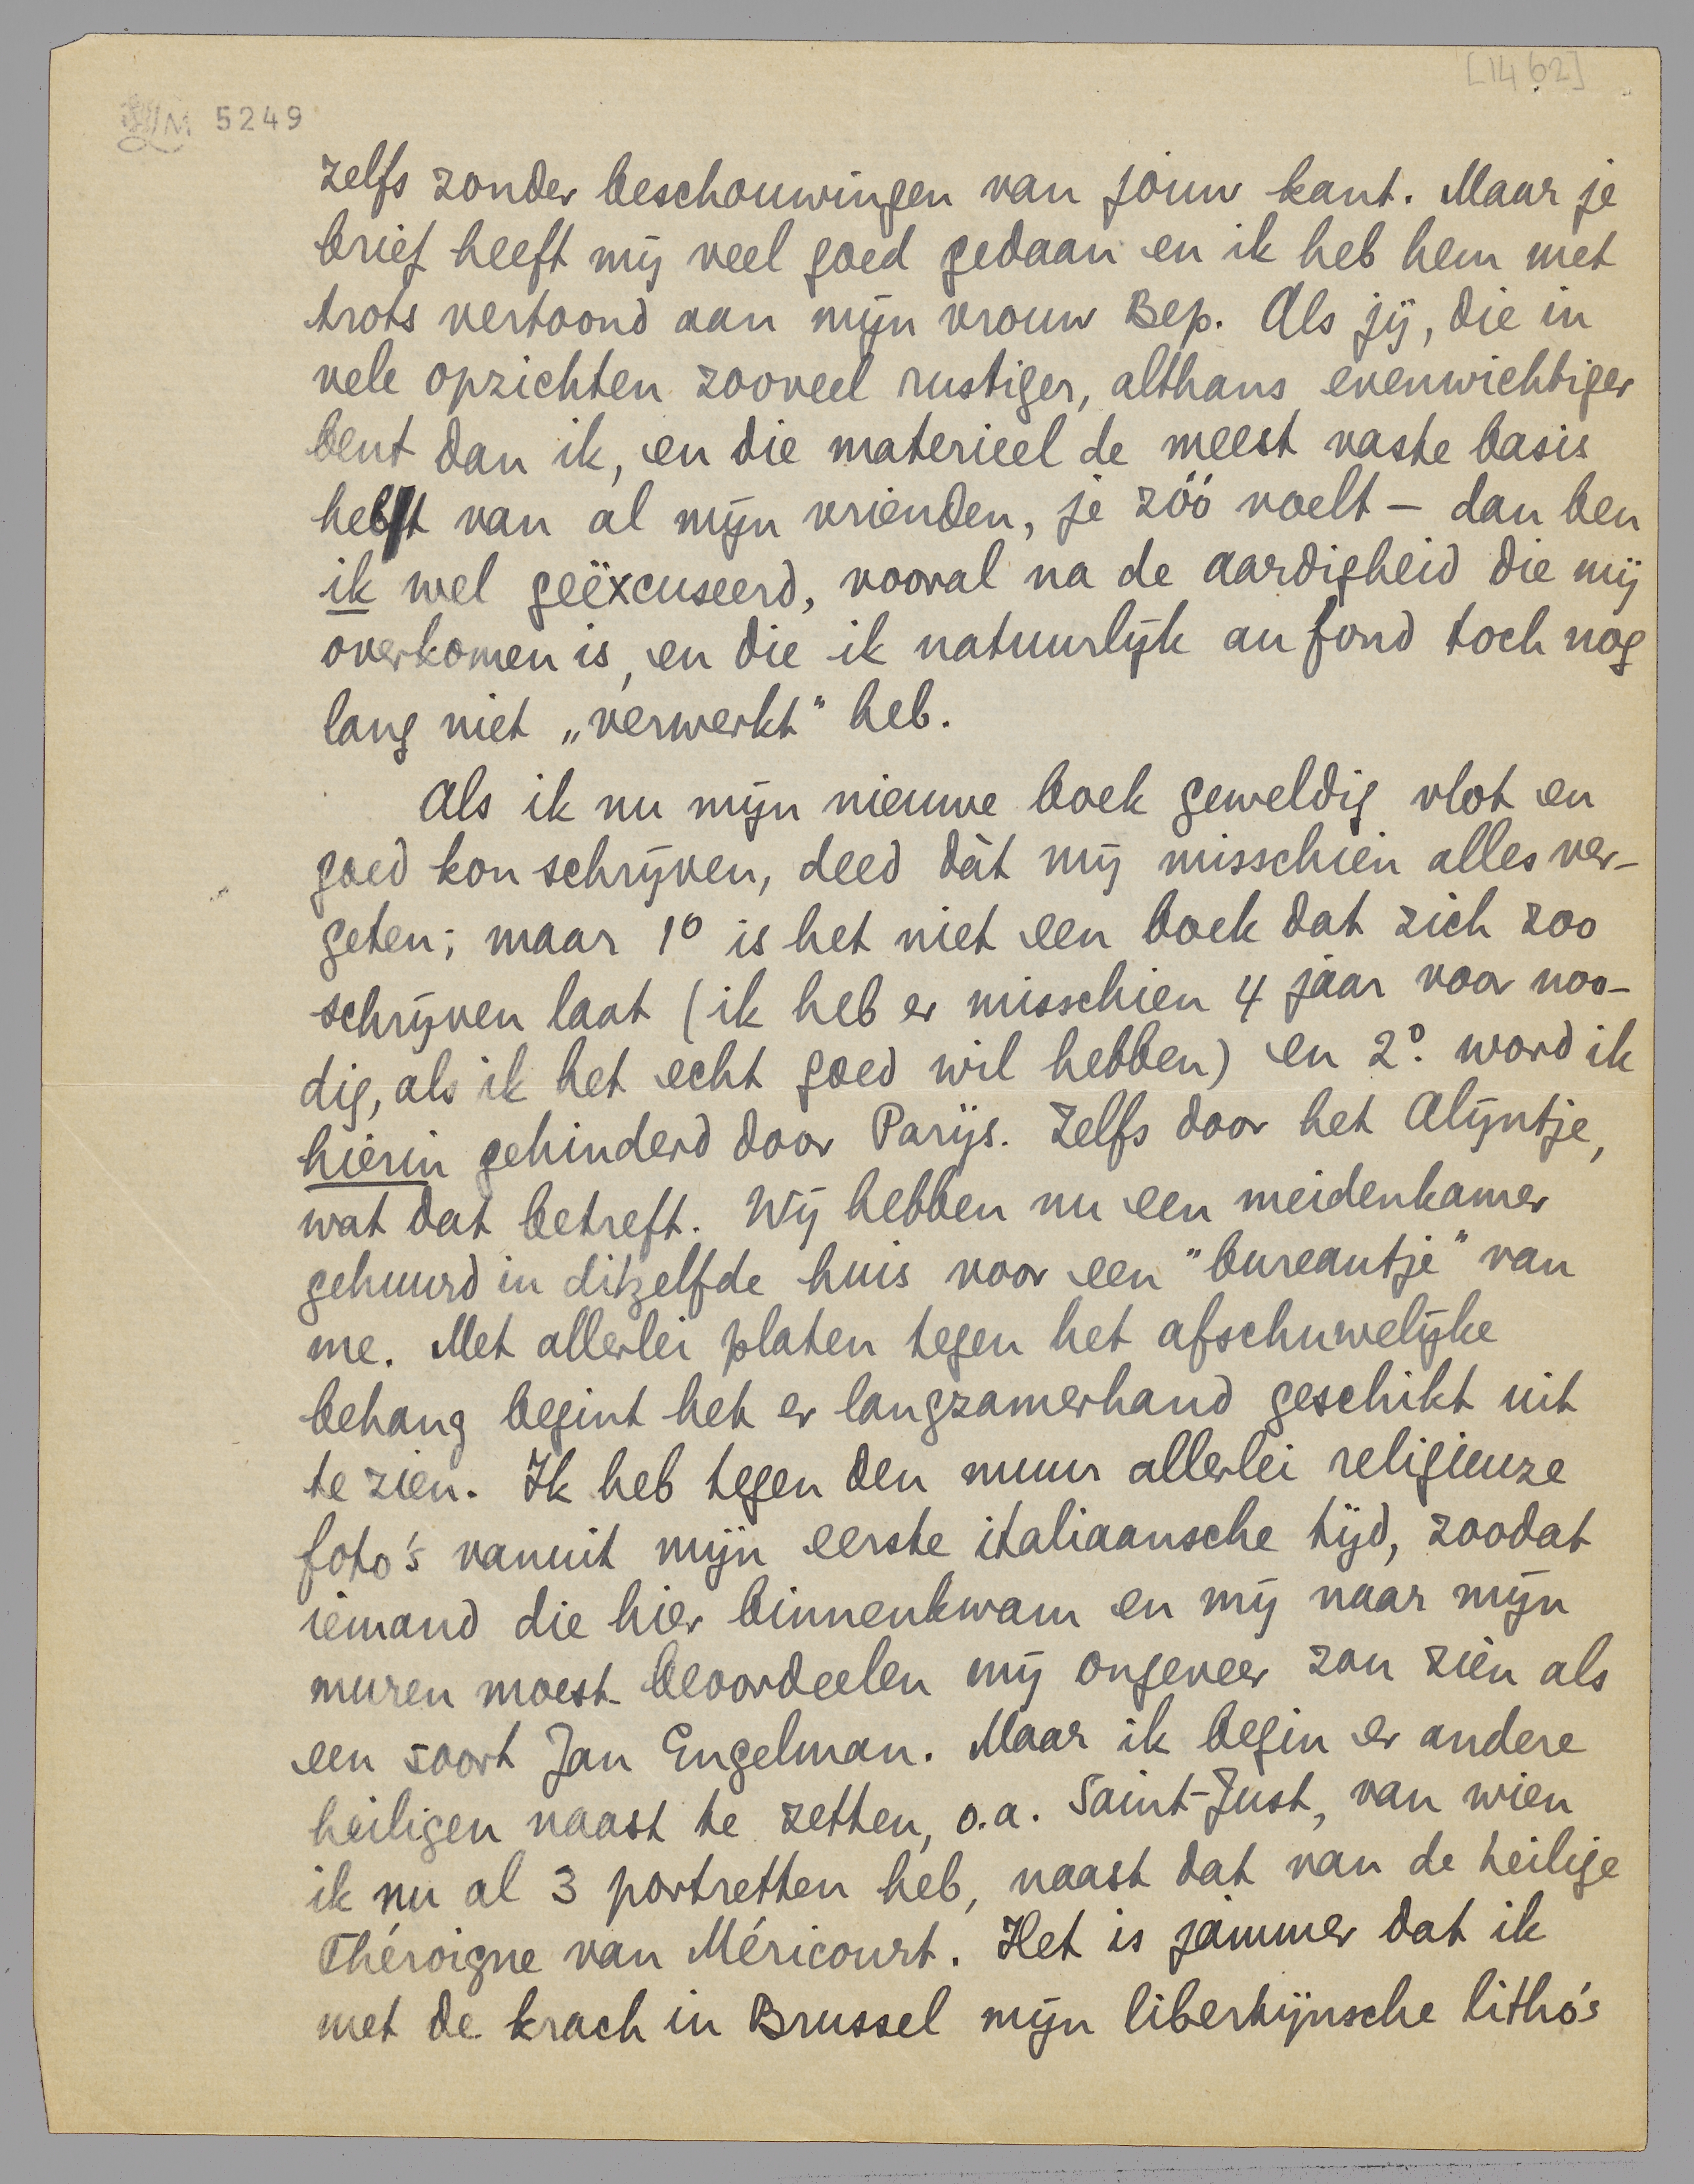 [1462]
LM 5249
zelfs zonder beschouwingen van jouw kant. Maar je
brief heeft mij veel goed gedaan en ik heb hem met
trots vertoond aan mijn vrouw Bep. Als jij, die in
vele opzichten zooveel rustiger, althans evenwichtiger
bent dan ik, en die materieel de meest vaste basis
hebt van al mijn vrienden, je zóó voelt – dan ben
ik wel geëxcuseerd, vooral na de aardigheid die mij
overkomen is, en die ik natuurlijk au fond toch nog
lang niet „verwerkt" heb.
Als ik nu mijn nieuwe boek geweldig vlot en
goed kon schrijven, deed dàt mij misschien alles ver-
geten; maar 1º is het niet een boek dat zich zoo
schrijven laat (ik heb er misschien 4 jaar voor noo-
dig, als ik het echt goed wil hebben) en 2º. word ik
hierin gehinderd door Parijs. Zelfs door het Alijntje,
wat dat betreft. Wij hebben nu een meidenkamer
gehuurd in ditzelfde huis voor een "bureautje" van
me. Met allerlei platen tegen het afschuwelijke
behang begint het er langzamerhand geschikt uit
te zien. Ik heb tegen den muur allerlei religieuze
foto's vanuit mijn eerste italiaansche tijd, zoodat
iemand die hier binnenkwam en mij naar mijn
muren moest beoordeelen mij ongeveer zou zien als
een soort Jan Engelman. Maar ik begin er andere
heiligen naast te zetten, o.a. Saint-Just, van wien
ik nu al 3 portretten heb, naast dat van de heilige
Théroigne van Méricourt. Het is jammer dat ik
met de krach in Brussel mijn libertijnsche litho's